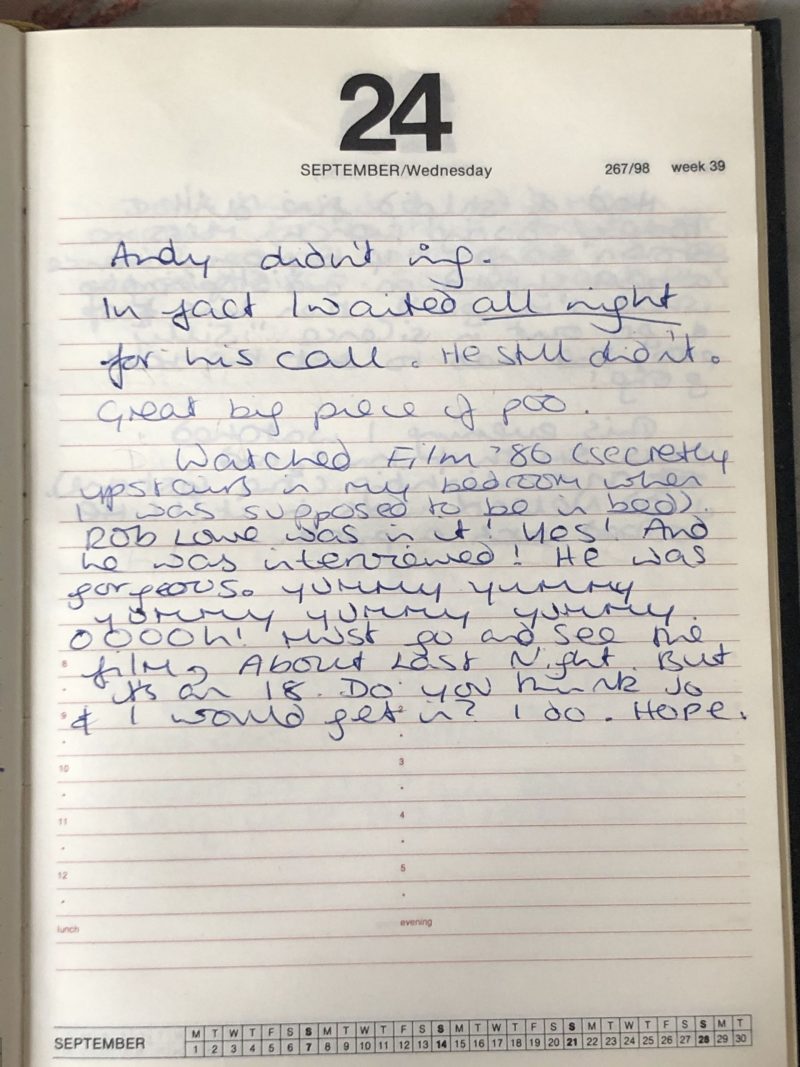 24
SEPTEMBER/Wednesday 267/98 week 39
Andy didn't ring.
In fact I waited all night
for his call. He still didn't.
Great big piece of poo.
Watched Film '86 (secretly
upstairs in my bedroom when
I was supposed to be in bed).
Rob Lowe was in it! Yes! And
he was interviewed! He was
gorgeous. yummy yummy
yummy yummy yummy.
OOOOh! Must go and see the
film, About Last Night. But
its an 18. Do you think Jo
& I would get in? I do. Hope.
8
9 2
10 3
11 4
12 5
lunch evening
SEPTEMBER M T W T F S S M T W T F S S M T W T F S S M T W T F S S M T
1 2 3 4 5 6 7 8 9 10 11 12 13 14 15 16 17 18 19 20 21 22 23 24 25 26 27 28 29 30